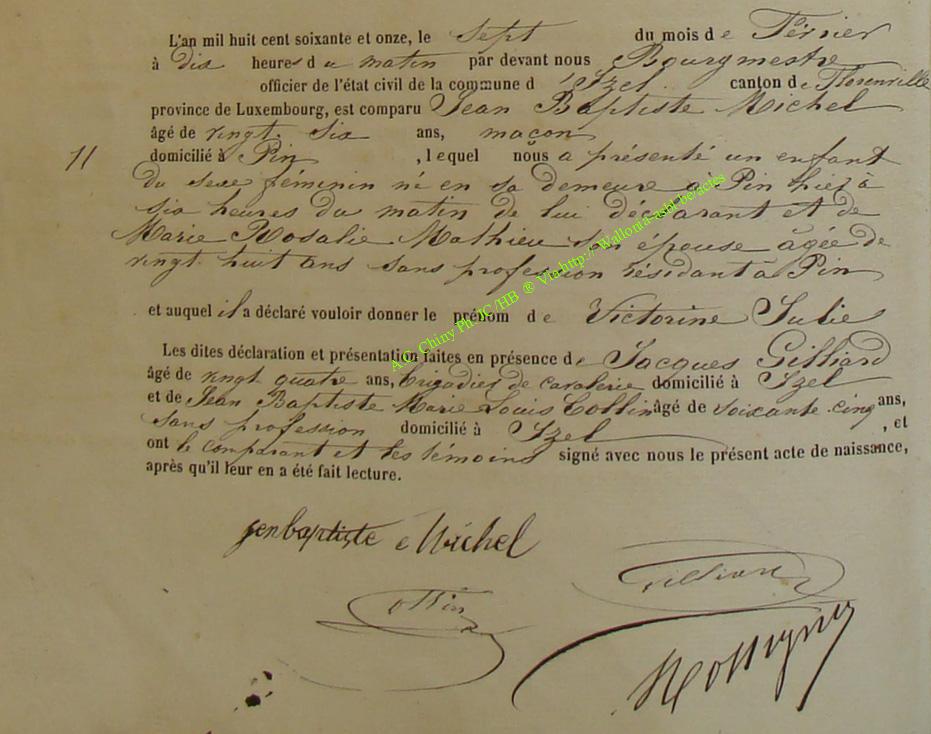 L'an mil huit cent soixante et onze, le sept du mois de Février
à dix heures du matin par devant nous Bourgmestre
officier de l'état civil de la commune d'Izel canton de Florenville
province de Luxembourg, est comparu Jean Baptiste Michel
âgé de vingt six ans, maçon
11 domicilié à Pin , lequel nous a présenté un enfant
du sexe féminin né en sa demeure à Pin hier à
six heures du matin de lui déclarant et de
Marie Rosalie Mathieu son épouse âgée de
vingt huit ans sans profession résidant à Pin
et auquel il a déclaré vouloir donner le prénom de Victorine Julie
Les dites déclaration et présentation faites en présence de Jacques Gilliard
âgé de vingt quatre ans, brigadier de cavalerie domicilié à Izel
et de Jean Baptiste Marie Louis Collin âgé de soixante cinq ans,
sans profession domicilié à Izel , et
ont le comparant et les témoins signé avec nous le présent acte de naissance,
après qu'il leur en a été fait lecture.
jenbaptiste Michel
Gilliard
Collin
AC Chiny Ph JC/HB ® Via http://Wallonia-asbl.be/actes